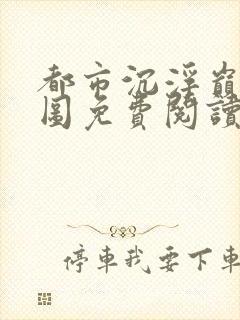 都市沉淫巔
圖免費閱讀
停車我要下車